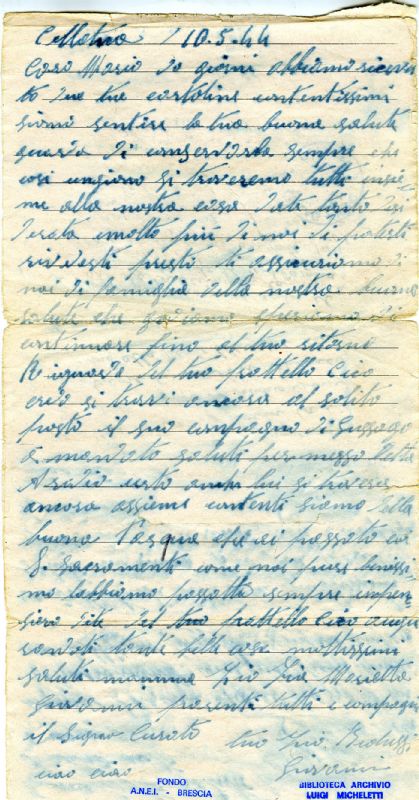 Cellatica 10.5.44
Caro Mario da giorni abbiamo ricevu
to due tue cartoline contentissimi
siamo sentire la tua buona salute
guarda di conservarla sempre che
così un giorno si troveremo tutti insie
me alla nostra casa date tanto desi
derata e molto più di noi di poterti
rivederti presto ti assicuriamo di
noi di famiglia della nostra buona
salute che godiamo e speriamo di
continuare fino al tuo ritorno
Riguardo del tuo frattello Cico
credo si trovi ancora al solito
posto il suo compagno di Gussago
a mandato saluti per mezzo della
certo anche lui si troverà
ancora assieme contenti siamo della
buona Pasqua che ai passato coi
S. Sacramenti come noi pure benissi
mo labbiamo passatta sempre in pen
siero di te del tuo frattello Cico augu
randoti tante belle cose moltissimi
saluti mamma Zio Zia Marietta
Giovanni parenti tutti e compagni
il Signor Curato tuo Zio Biduzzi
ciao ciao Giovanni
FONDO
A.N.E.I. - BRESCIA
BIBLIOTECA ARCHIVIO
LUIGI MICHELETTI